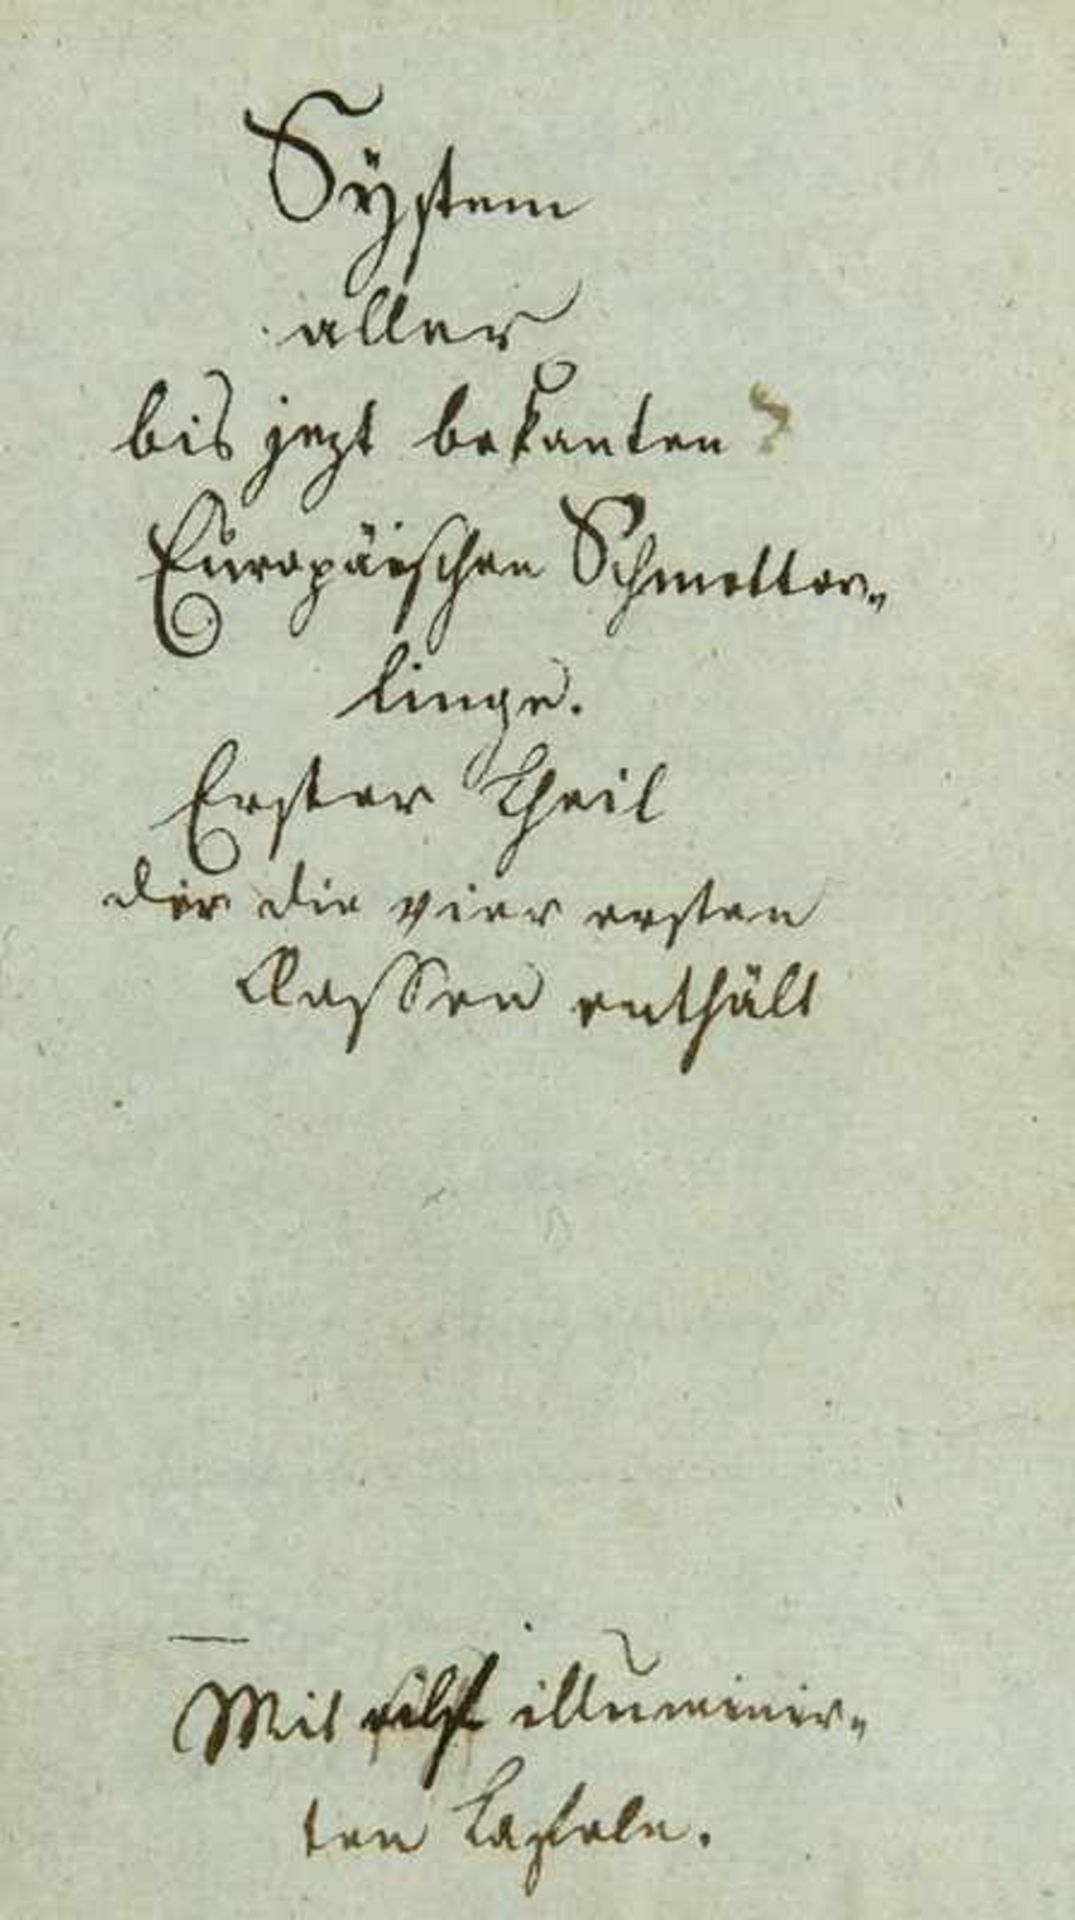 Sÿstem
aller
bis jezt bekanten
Europäischen Schmetter„
linge.
Erster Theil
der die vier ersten
Classen enthält
Mit illuminir„
ten Tafeln.